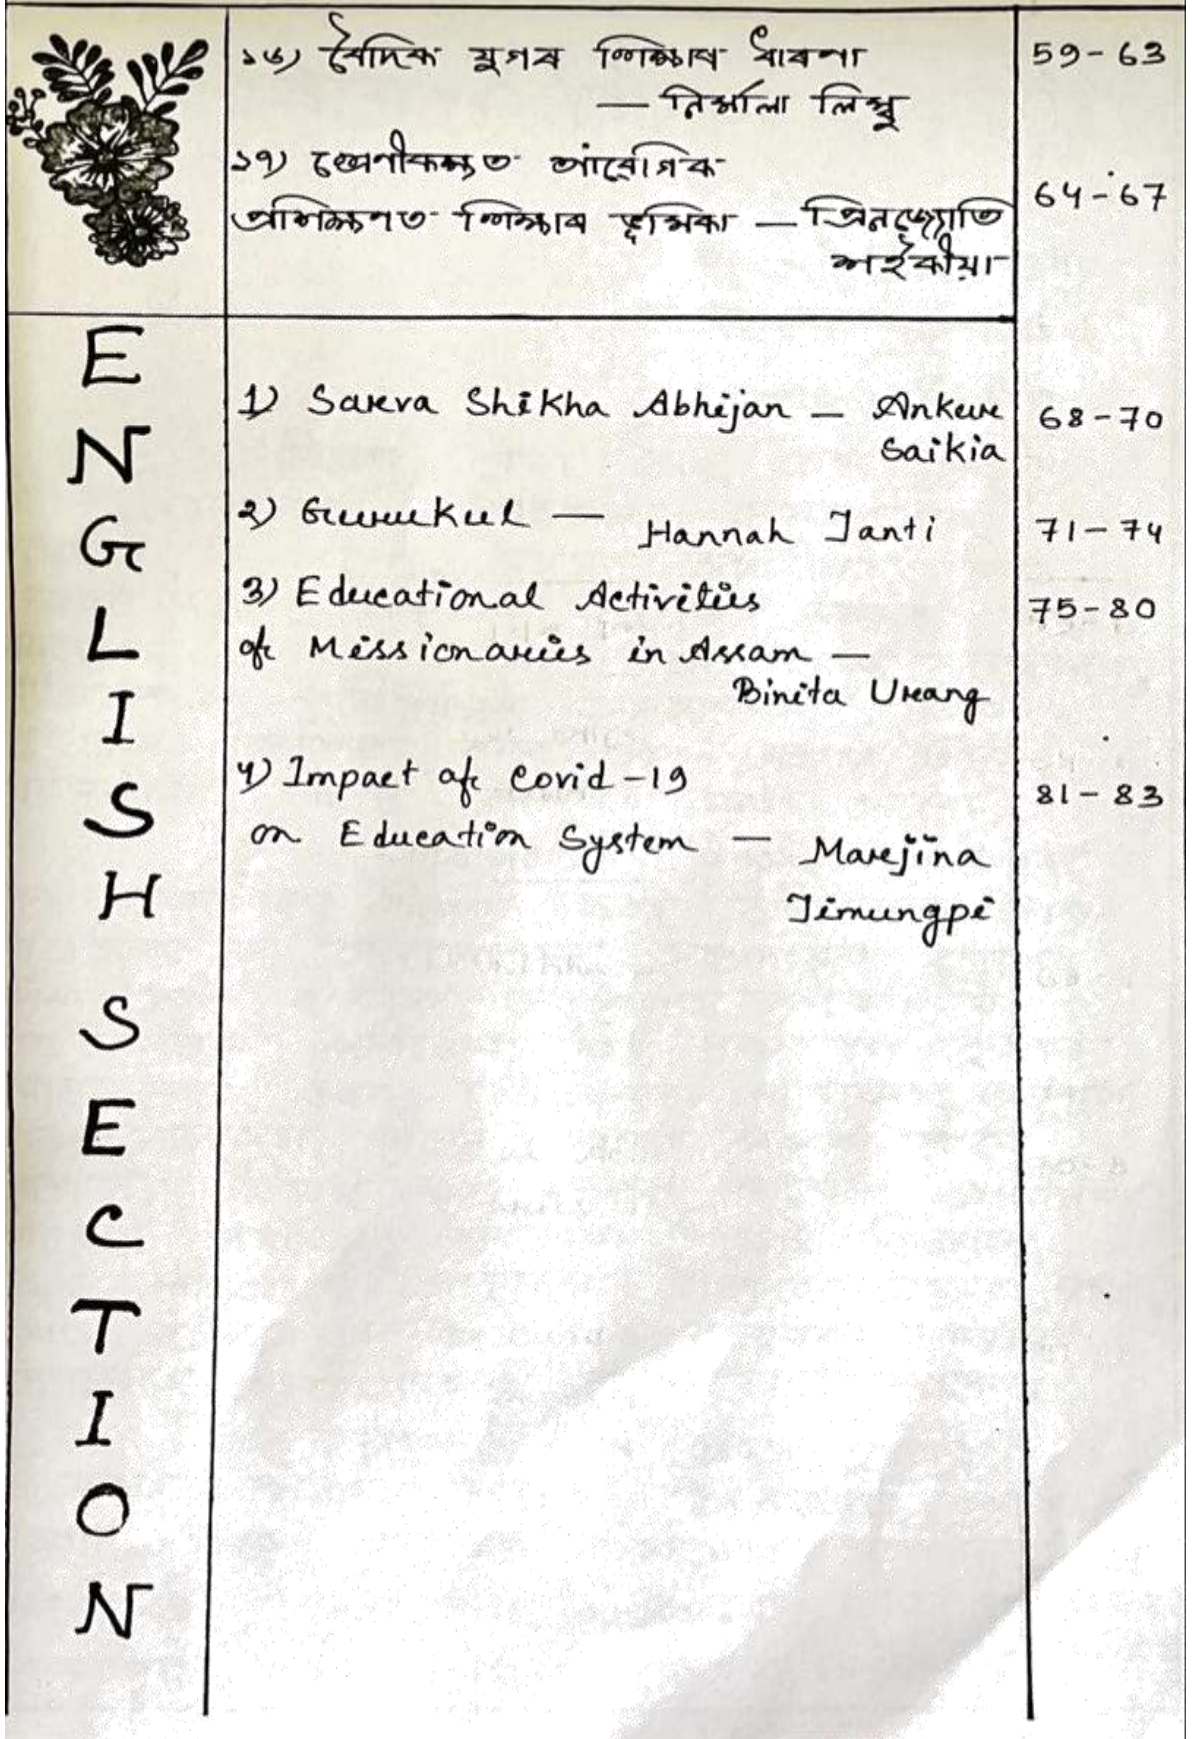 ১৬) বৈদিক যুগৰ শিক্ষাৰ ধাৰণা 59-63
— নিৰ্মালা লিম্বু
১৭) শ্ৰেণীকক্ষত আবেগিক
প্ৰশিক্ষণত শিক্ষাৰ ভূমিকা — প্ৰিনজ্যোতি 64-67
শইকীয়া
ENGLISH SECTION
1) Sarva Shikha Abhijan — Ankur 68-70
Saikia
2) Gurukul — Hannah Tanti 71-74
3) Educational Activities 75-80
of Missionaries in Assam —
Binita Urang
4) Impact of Covid-19 81-83
on Education System — Marjina
Timungpi